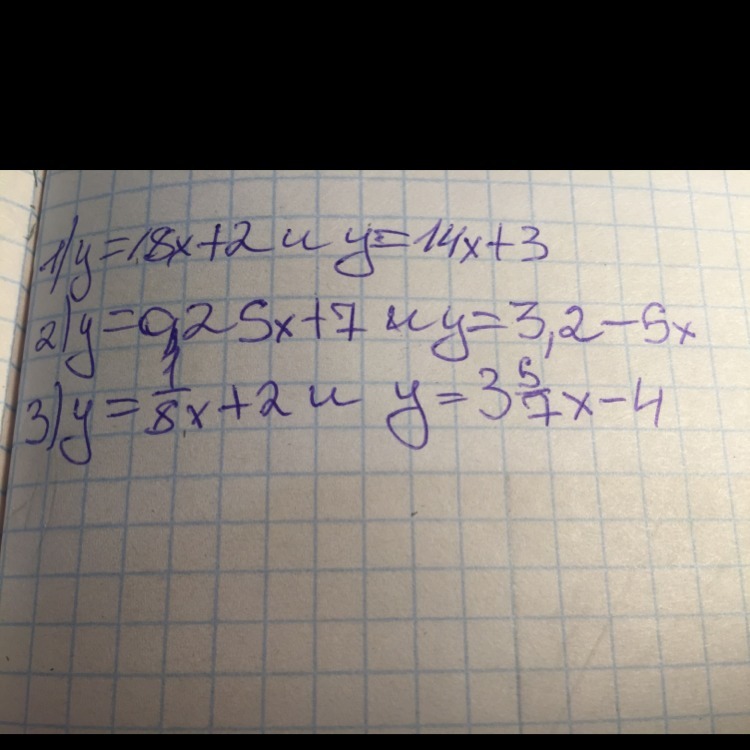 1) y = 18x + 2 и y = 14x + 3
2) y = 0,25x + 7 и y = 3,2 - 5x
3) y = 1/8 x + 2 и y = 3 5/7 x - 4